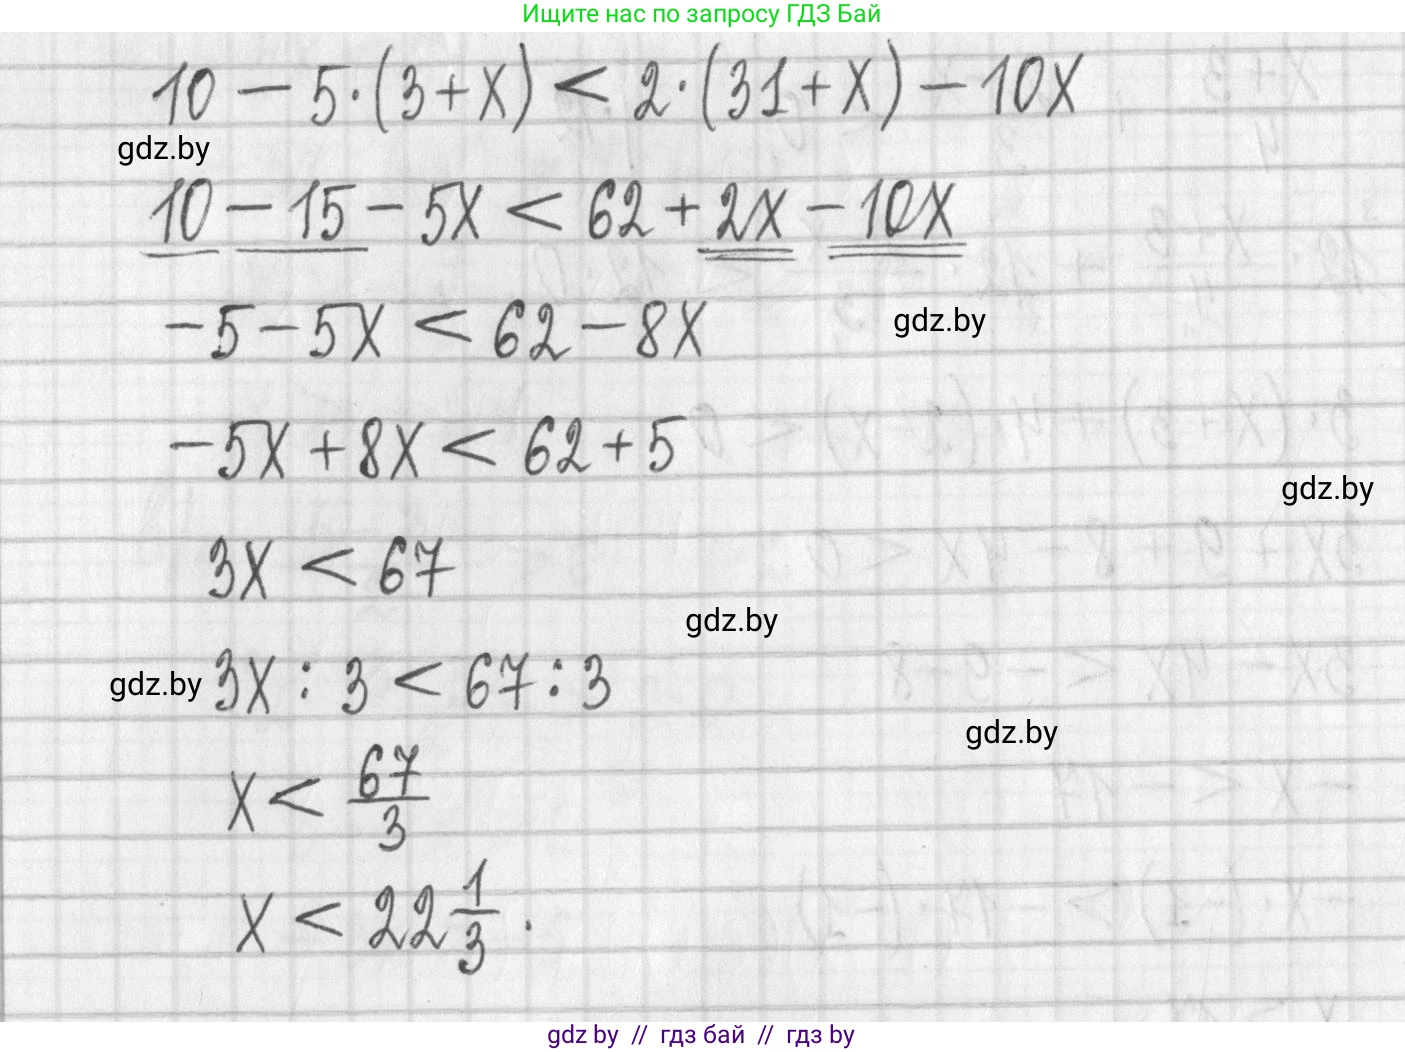 Ищите нас по запросу ГДЗ Бай
10 - 5·(3+x) < 2·(31+x) - 10x
gdz.by
10 - 15 - 5x < 62 + 2x - 10x
-5 - 5x < 62 - 8x
gdz.by
-5x + 8x < 62 + 5
gdz.by
3x < 67
gdz.by
gdz.by
3x : 3 < 67 : 3
gdz.by
x < 67/3
x < 22 1/3.
gdz by // гдз бай // гдз by